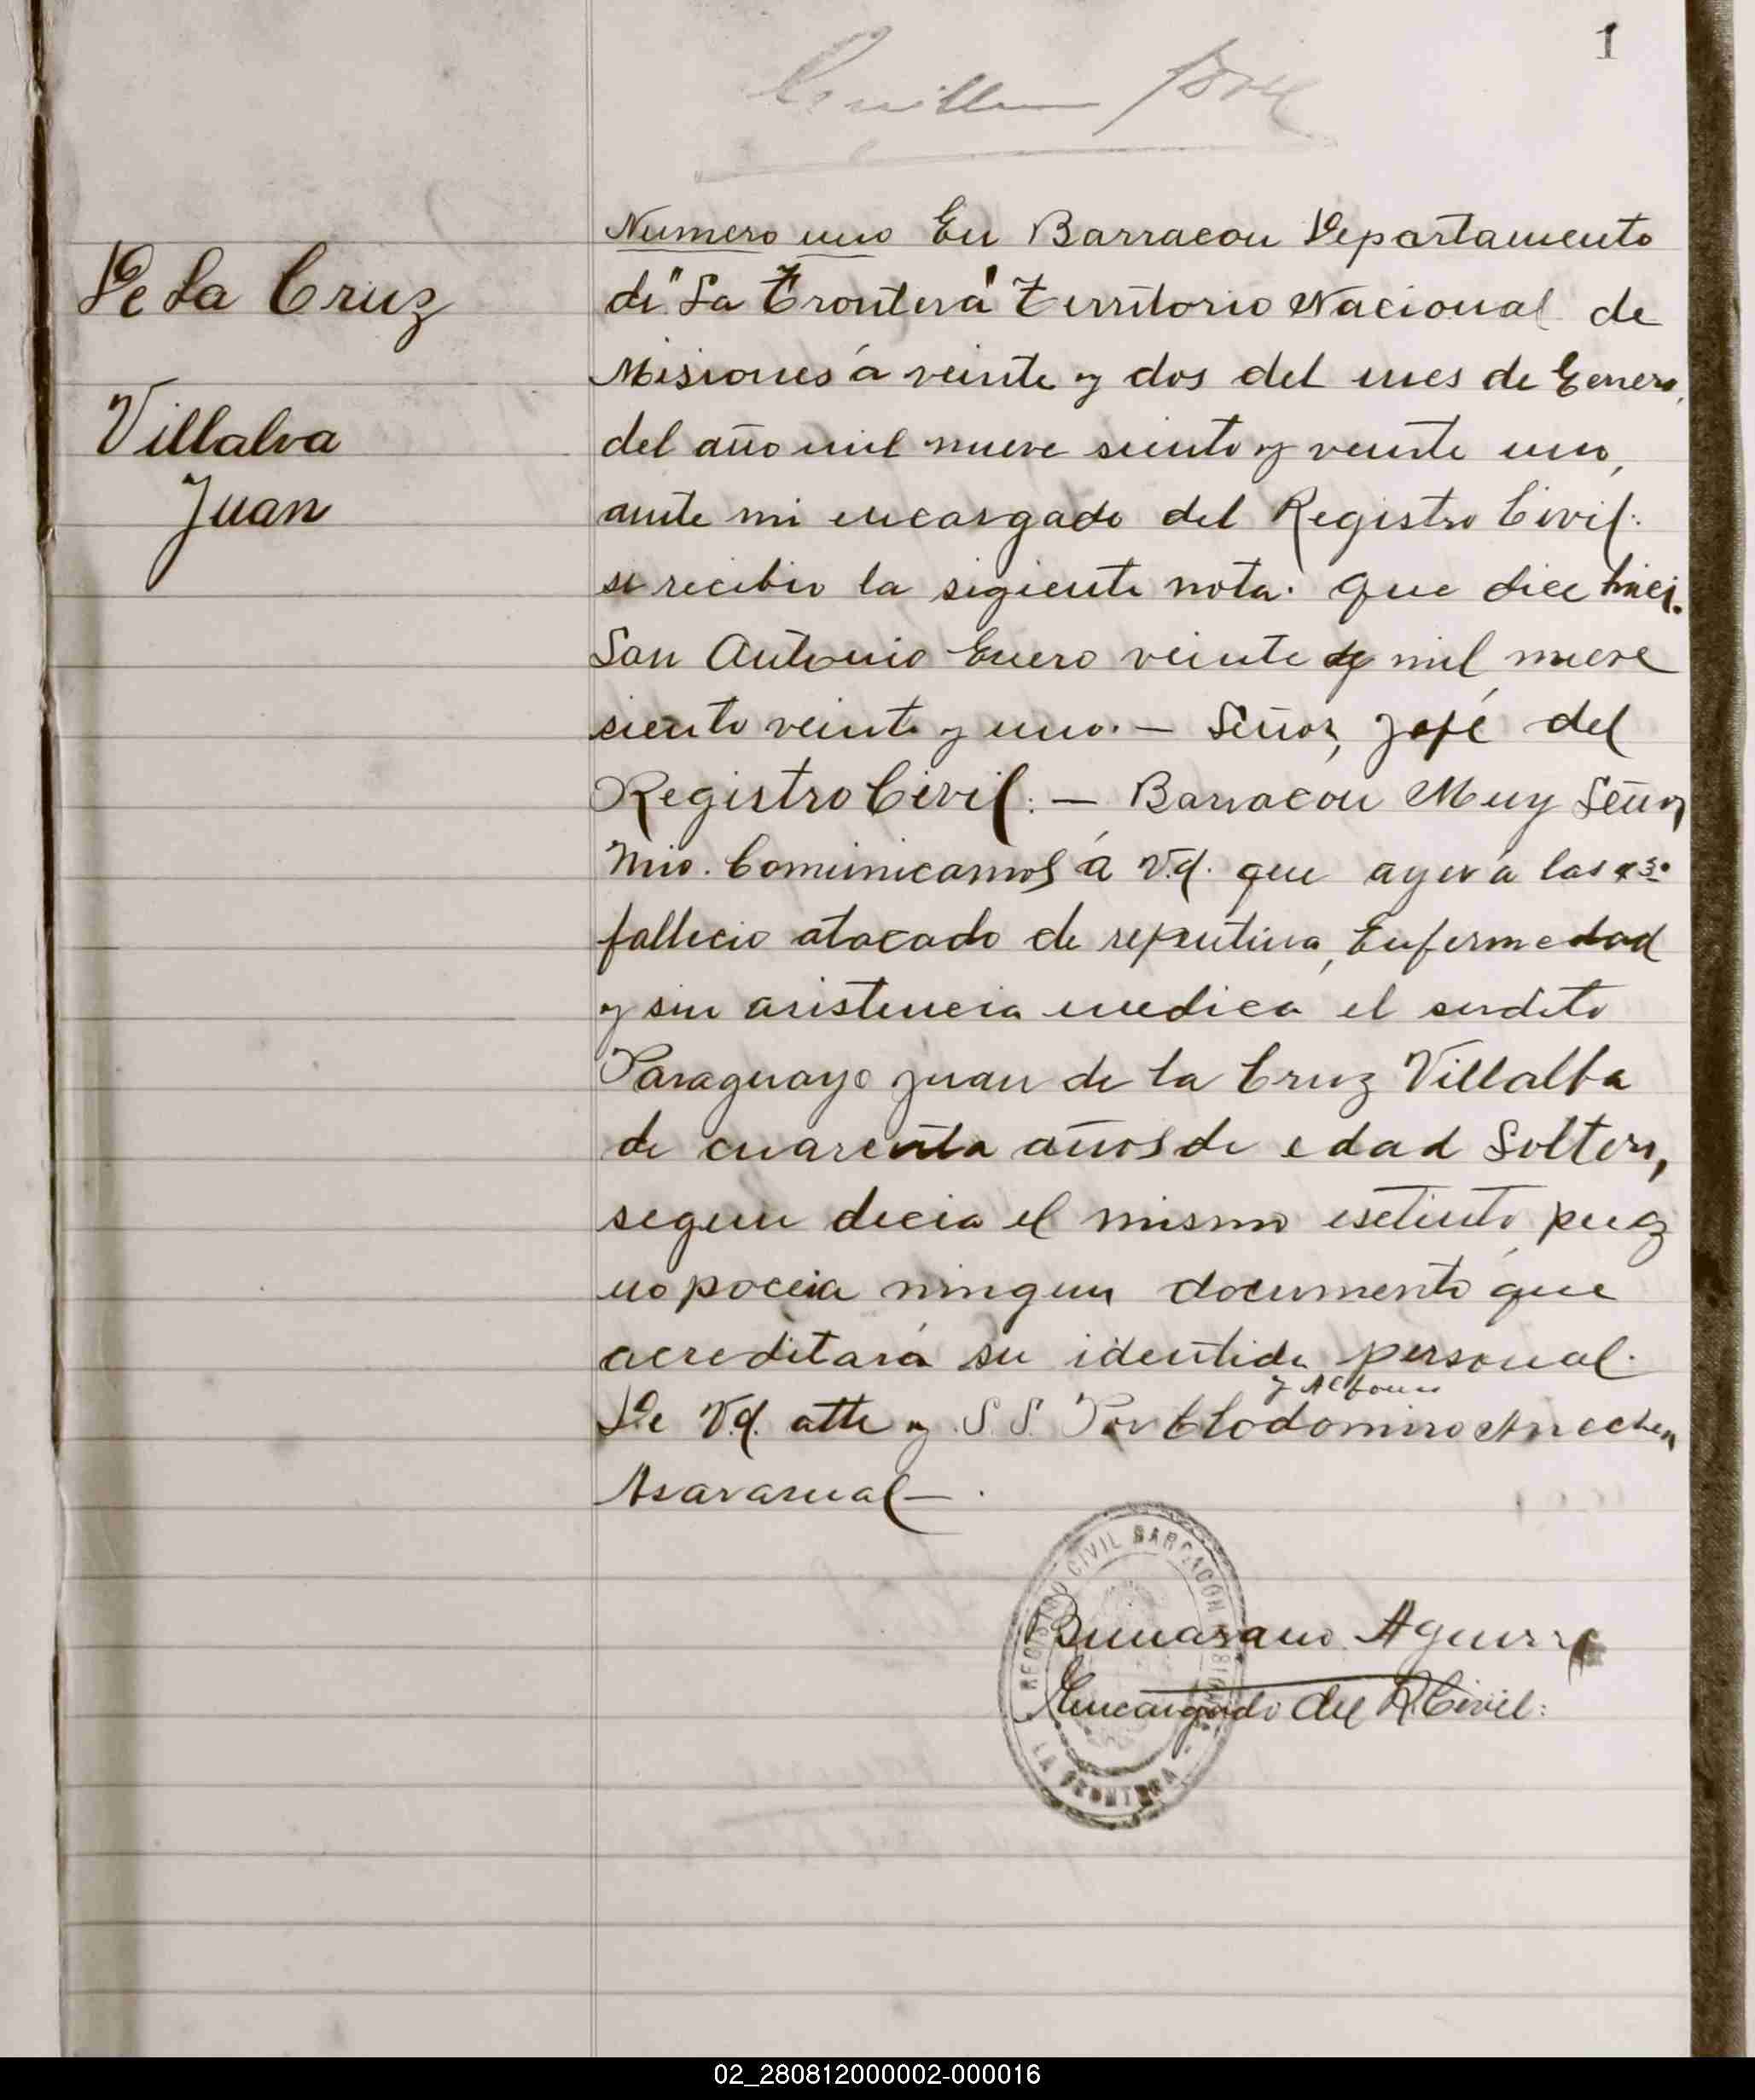 1
De La Cruz
Villalva
Juan
Numero uno En Barracon Departamento
de "La Frontera" Territorio Nacional de
Misiones á veinte y dos del mes de Eenero,
del año mil nueve siento y veinte uno,
ante mi encargado del Registro Civil:
se recibio la sigiente nota: que dice
San Antonio Enero veinte de mil nueve
ciento veinte y uno. — Señor, Jefé del
Registro Civil: — Barracon Muy Señor
Mio. Cominicamos á V.d. que ayer á las
fallecio atacado de repentina, Enfermedad
y sin asistencia medica el sudito
Paraguayo Juan de la Cruz Villalba
de cuarenta años de edad Soltero,
segun decia el mismo esetinto pues
no poceia ningun documento que
acreditará su identida personal.
y Albour
De V.d. atte y S. S. Por Clodomiro Arrechea
REGISTRO CIVIL BARRACON MISIONES
LA FRONTERA
Aguirre
Encargado del R. Civil:
02_280812000002-000016